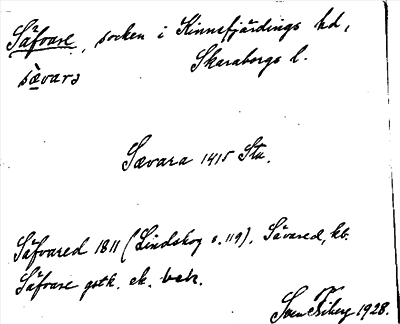 Säfvare, socken i Kinnefjärdings hd,
sævarə Skaraborgs l.
Sævara 1415 Stu.
Säfvared 1811 (Lindskog s. 119). Sävared, kb.
Säfvare gstk. ek. bok.
Sven Friberg 1928.